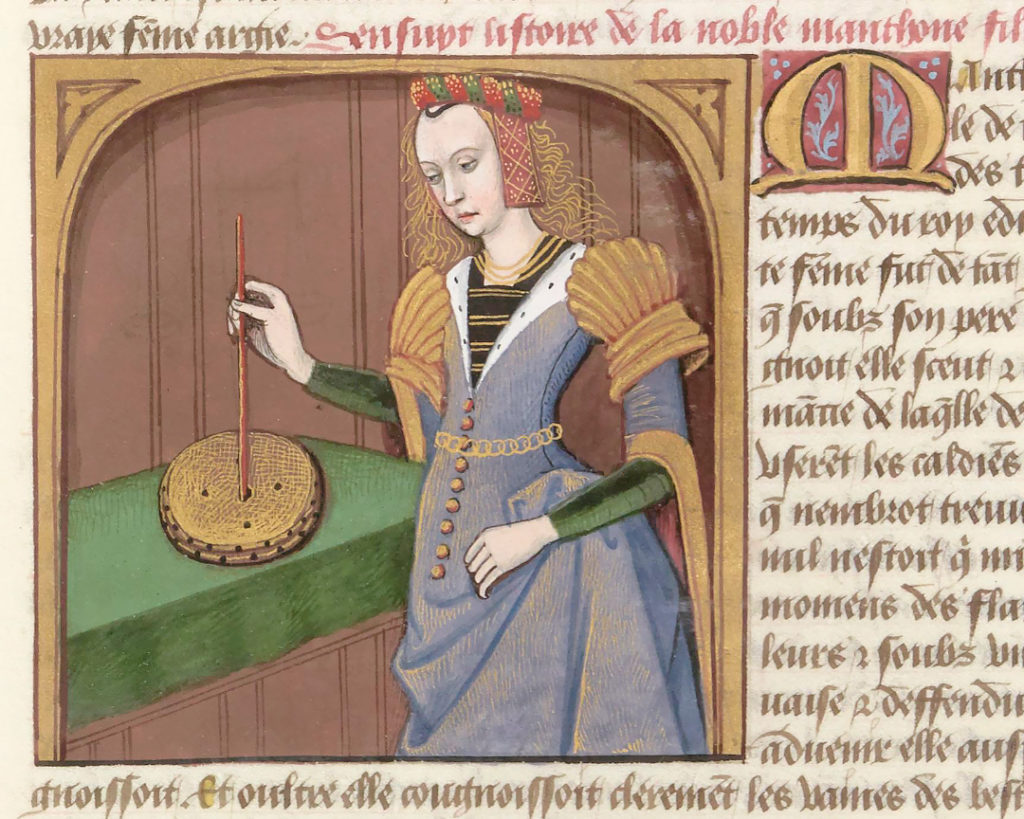 vraye fēme archie. Sensuyt listoire de la noble manthone fil
M Anth
le de
des t
temps du roy edi
te fēme fut de tāt
q̄ soubz son pere
gnoit elle scent ⁊
mācie de laq̄lle de
vserēt les caldiēs
q̄ nembrot treuu
nul nestoit q̄ mi
momens des fla
leurs ⁊ soubz vn
uaise ⁊ deffendu
aduenir elle aus
gnoissoit. Et oultre elle congnoissoit cleremēt les vaines des best